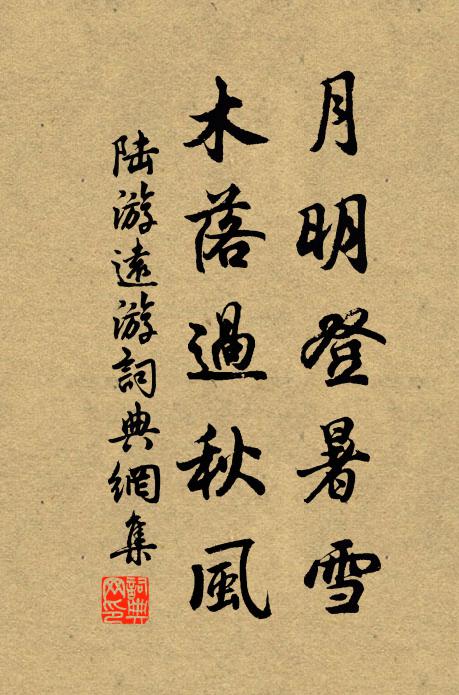 月明登暑雪
木落過秋風
陸游遠游詞典網集
詞典网印